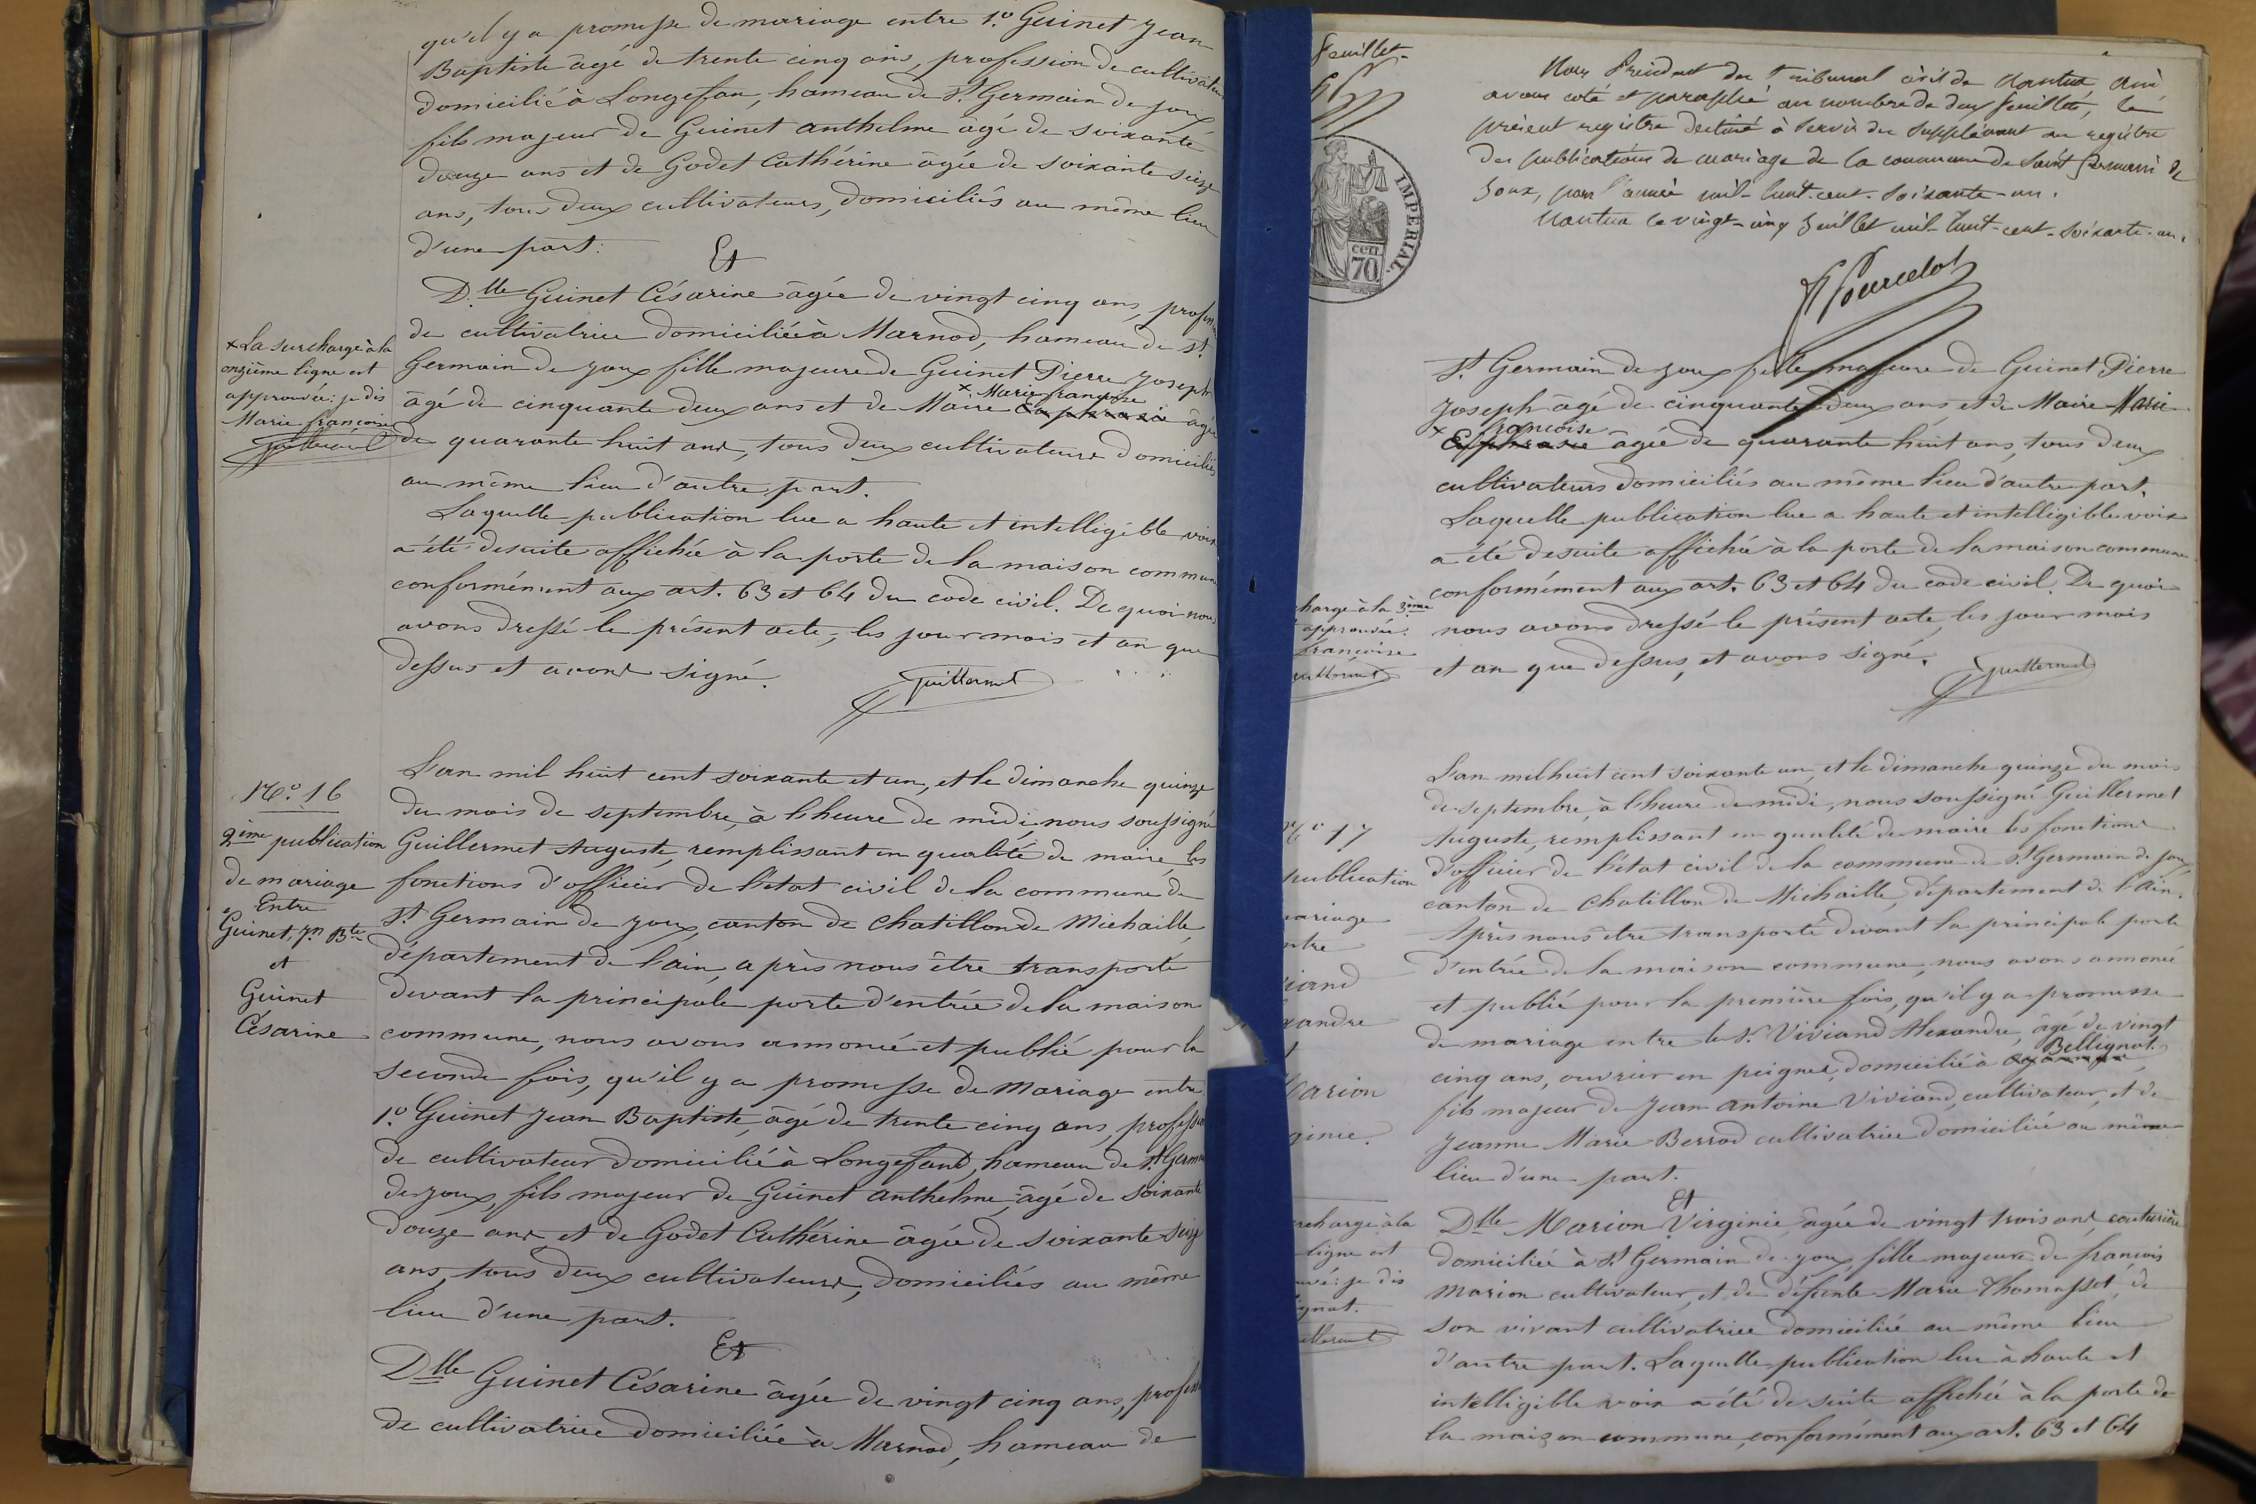 qu'il y a promesse de mariage entre 1.o Guinet Jean
Baptiste âgé de trente cinq ans, profession de cultivateur
domicilié à Longefan, hameau de St. Germain de joux
fils majeur de Guinet Anthelme âgé de soixante
douze ans et de Godet Cathérine âgée de soixante seize
ans, tous deux cultivateurs, domiciliés au même lieu
d'une part:
Et
Dlle Guinet Césarine âgée de vingt cinq ans, profession
de cultivatrice domiciliée à Marnod, hameau de St.
Germain de joux fille majeure de Guinet Pierre Joseph
× Marie françoise
âgé de cinquante deux ans et de Maire Euphrasie âgée
de quarante huit ans, tous deux cultivateurs domiciliés
au même lieu d'autre part.
Laquelle publication lue a haute et intelligible voix
a été desuite affichée à la porte de la maison commune
conformément aux art. 63 et 64 du code civil. De quoi nous
avons dressé le présent acte, les jour mois et an que
dessus et avons signé.
Guillermet
× La surcharge à la
onzième ligne est
approuvée: je dis
Marie françoise
Guillermet
No. 16
2ème publication
de mariage
Entre
Guinet, Jn Bte
et
Guinet
Césarine
L'an mil huit cent soixante et un, et le dimanche quinze
du mois de septembre, à l'heure de midi, nous soussigné
Guillermet Auguste, remplissant en qualité de maire, les
fonctions d'officier de l'état civil de la commune de
St Germain de joux, canton de Chatillon de Michaille,
département de l'ain, après nous être transporté
devant la principale porte d'entrée de la maison
commune, nous avons annoncé et publié pour la
seconde fois, qu'il y a promesse de mariage entre
1.o Guinet Jean Baptiste, âgé de trente cinq ans, profession
de cultivateur domicilié à Longefand, hameau de St Germain
de joux, fils majeur de Guinet Anthelme, âgé de soixante
douze ans et de Godet Cathérine âgée de soixante seize
ans, tous deux cultivateurs, domiciliés au même
lieu d'une part.
Et
Dlle Guinet Césarine âgée de vingt cinq ans, profession
de cultivatrice domiciliée à Marnod, hameau de
feuillet
Nous Président du Tribunal civil de Nantua, Ain
avons coté et paraphé au nombre de deux feuillets, le
présent registre destiné à servir de supplément au registre
des publications de mariage de la commune de Saint Germain de
Joux, pour l'année mil-huit-cent-soixante-un.
Nantua le vingt-cinq Juillet mil-huit-cent-soixante-un.
IMPERIAL.
cen
70
St. Germain de joux fille majeure de Guinet Pierre
Joseph âgé de cinquante deux ans et de Maire Marie
× françoise
Euphrasie âgée de quarante huit ans, tous deux
cultivateurs domiciliés au même lieu d'autre part.
Laquelle publication lue a haute et intelligible voix
a été desuite affichée à la porte de la maison commune
conformément aux art. 63 et 64 du code civil. De quoi
nous avons dressé le présent acte, les jour mois
et an que dessus, et avons signé.
Guillermet
charge à la 3ème
approuvée:
françoise
Guillermet
No 17
publication
mariage
ntre
iand
xandre
t
Marion
ginie.
L'an mil huit cent soixante un, et le dimanche quinze du mois
de septembre, à l'heure de midi, nous soussigné Guillermet
Auguste, remplissant en qualité de maire les fonctions
d'officier de l'état civil de la commune de St Germain de joux
canton de Chatillon de Michaille, département de l'ain.
Après nous être transporté devant la principale porte
d'entrée de la maison commune, nous avons annoncé
et publié pour la première fois, qu'il y a promesse
de mariage entre le Sr. Viviand Alexandre, âgé de vingt
Bellignat.
cinq ans, ouvrier en peignes, domicilié à
fils majeur de Jean Antoine Viviand, cultivateur, et de
Jeanne Marie Berrod cultivatrice domiciliée au même
lieu d'une part.
Et
Dlle Marion Virginie, âgée de vingt trois ans, couturière
domiciliée à St Germain de joux, fille majeure de françois
Marion cultivateur, et de défunte Marie Thomasset, de
son vivant cultivatrice domiciliée au même lieu
d'autre part. Laquelle publication lue à haute et
intelligible voix a été de suite affichée à la porte de
la maison commune, conformément aux art. 63 et 64
rcharge à la
ligne est
uvé: je dis
gnat.
illermet